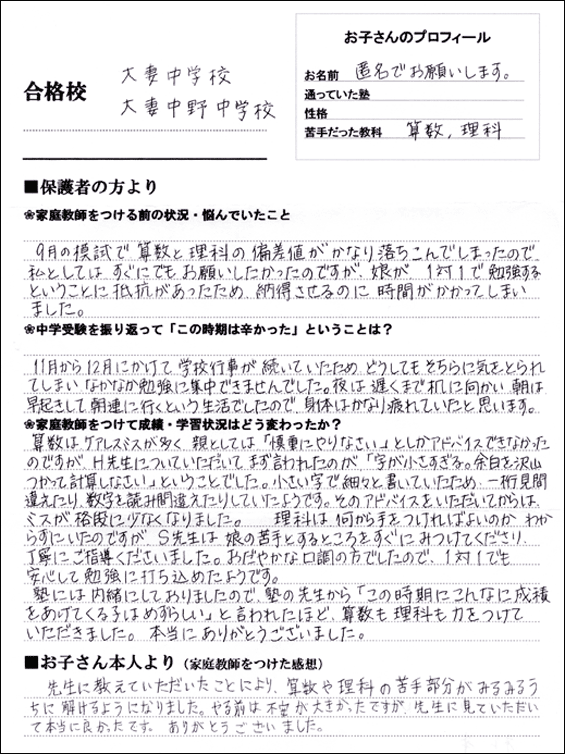 合格校
大妻中学校
大妻中野中学校
お子さんのプロフィール
お名前 匿名でお願いします。
通っていた塾
性格
苦手だった教科 算数,理科
■保護者の方より
❀家庭教師をつける前の状況・悩んでいたこと
9月の模試で算数と理科の偏差値がかなり落ちこんでしまったので
私としてはすぐにでもお願いしたかったのですが、娘が1対1で勉強する
ということに抵抗があったため、納得させるのに時間がかかってしまい
ました。
❀中学受験を振り返って「この時期は辛かった」ということは？
11月から12月にかけて学校行事が続いていたため、どうしてもそちらに気をとられ
てしまい なかなか勉強に集中できませんでした。夜は遅くまで机に向かい、朝は
早起きして朝連に行くという生活でしたので、身体はかなり疲れていたと思います。
❀家庭教師をつけて成績・学習状況はどう変わったか？
算数はケアレスミスが多く、親としては「慎重にやりなさい。」としかアドバイスできなかった
のですが、H先生についていただいてまず言われたのが「字が小さすぎる。余白を沢山
つかって計算しなさい」ということでした。小さい字で細々と書いていたため、一桁見間
違えたり、数字を読み間違えたりしていたようです。そのアドバイスをいただいてからは、
ミスが格段に少なくなりました。 理科は何から手をつければよいのかわか
らずにいたのですが、S先生は娘の苦手とするところをすぐにみつけてくださり、
丁寧にご指導くださいました。おだやかな口調の方でしたので、1対1でも
安心して勉強に打ち込めたようです。
塾には内緒にしておりましたので、塾の先生から「この時期にこんなに成積
をあげてくる子はめずらしい」と言われたほど、算数も理科も力をつけて
いただきました。本当にありがとうございました。
■お子さん本人より（家庭教師をつけた感想）
先生に教えていただいたことにより、算数や理科の苦手部分がみるみるう
ちに解けるようになりました。やる前は不安が大きかったですが、先生に見ていただい
て本当に良かったです。ありがとうございました。